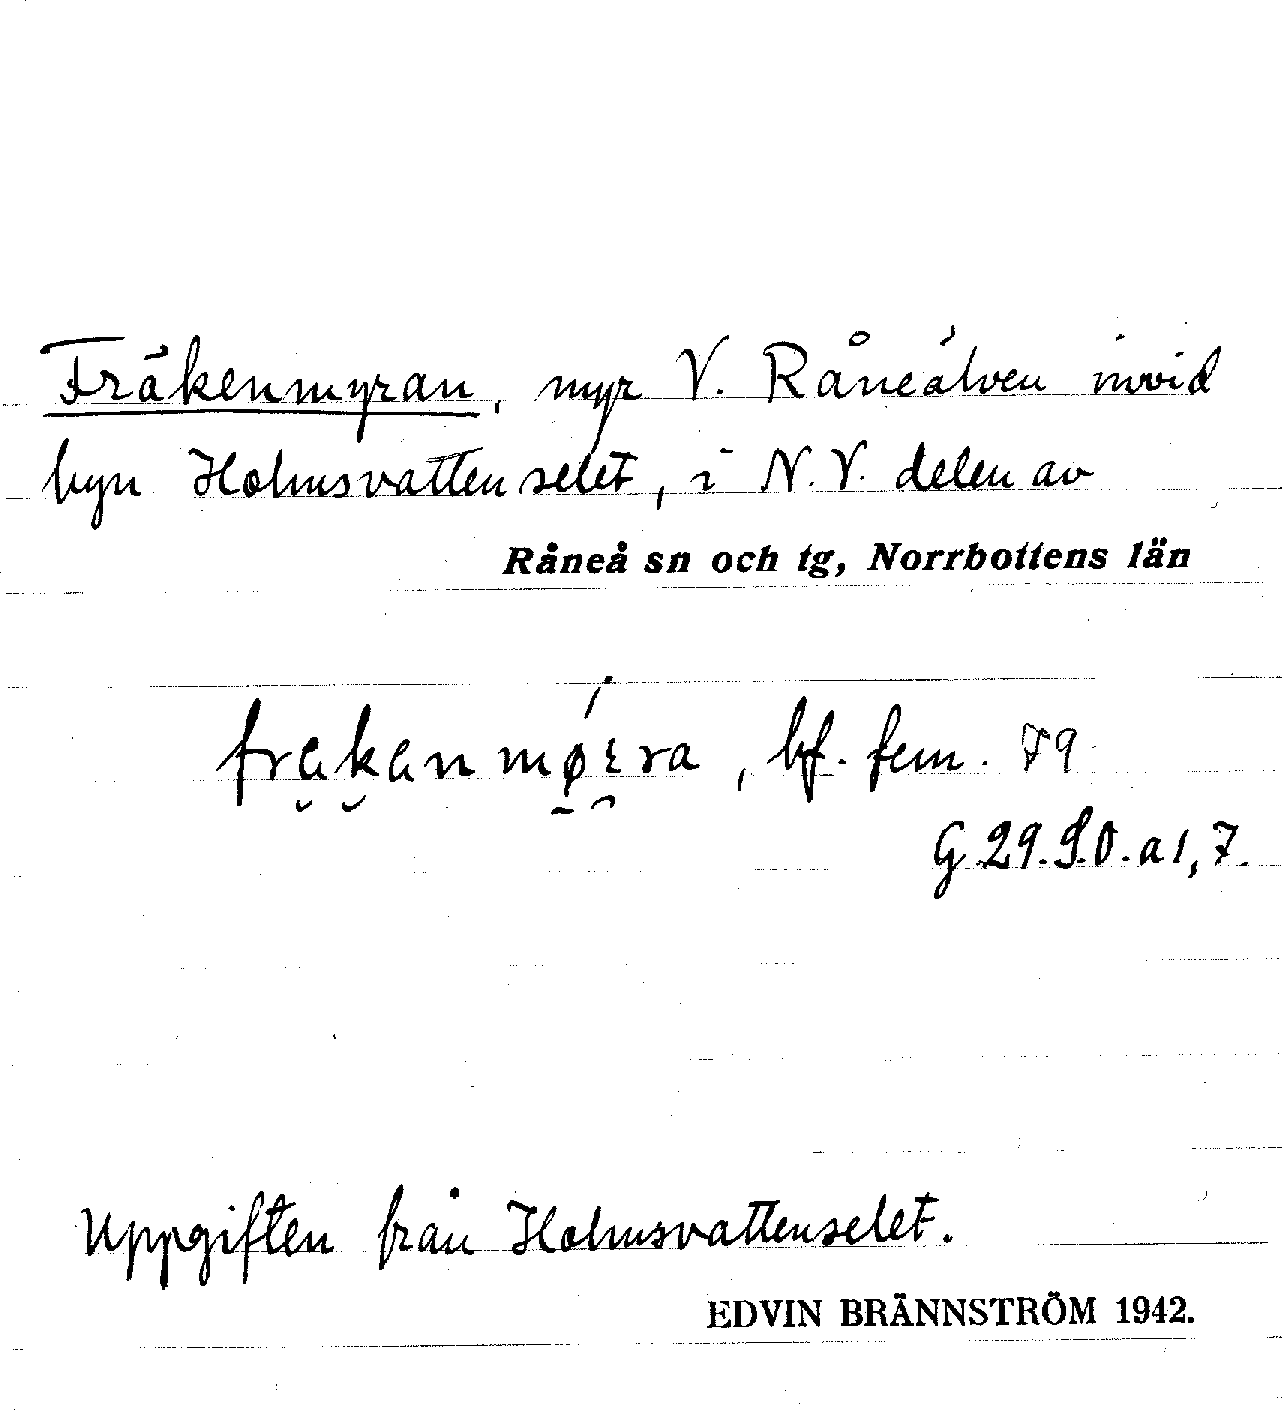 Fräkenmyran, myr V. Råneälven invid
byn Holmsvattenselet, i N.V. delen av
Råneå sn och tg, Norrbottens län
bf. fem. 79
G 29. S.O. a 1, 7.
Uppgiften från Holmsvattenselet.
EDVIN BRÄNNSTRÖM 1942.